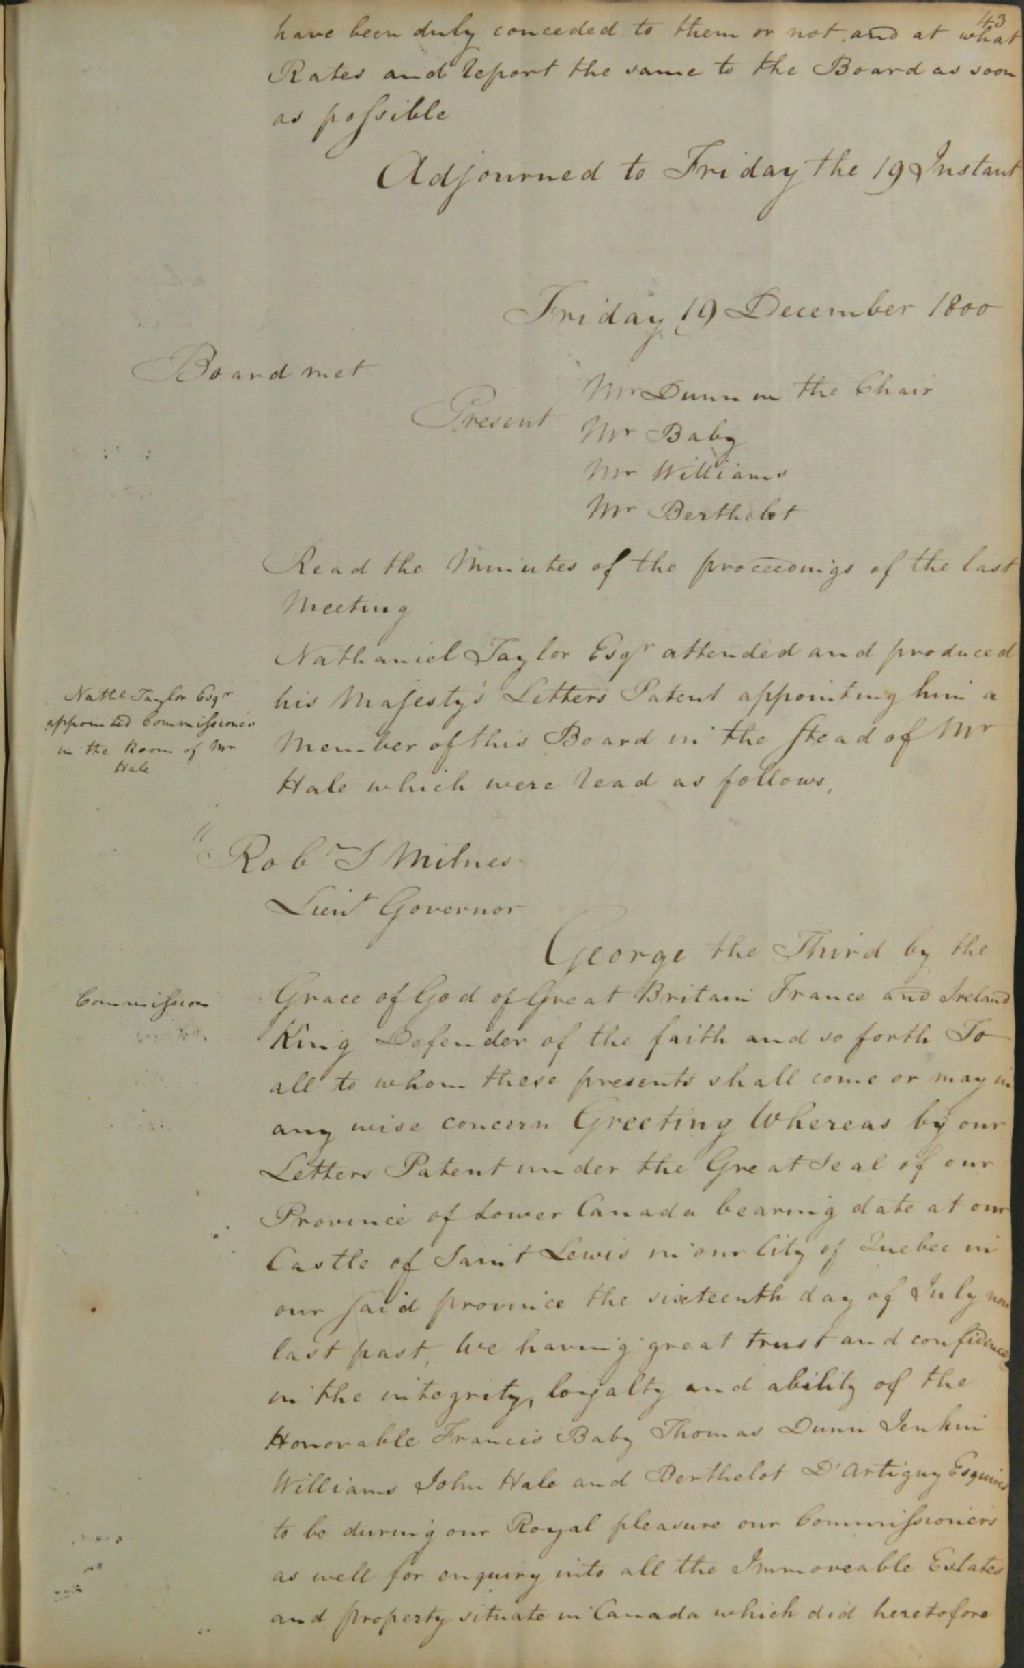 43
have been duly conceded to them or not and at what
Rates and report the same to the Board as soon
as possible
Adjourned to Friday the 19 Instant
Friday 19 December 1800
Board met
Present
Mr Dunn in the Chair
Mr Baby
Mr Williams
Mr Berthelot
Read the Minutes of the proceedings of the last
Meeting
Nathaniel Taylor Esqr attended and produced
his Majesty's Letters Patent appointing him a
Member of this Board in the Stead of Mr
Hale which were read as follows,
Nathl Taylor Esqr
appointed Commissioner
in the Room of Mr
Hale
"Robt S Milnes
Lieut Governor
George the Third by the
Commission
Grace of God of Great Britain France and Ireland
King Defender of the faith and so forth To
all to whom these presents shall come or may in
any wise concern Greeting Whereas by our
Letters Patent under the Great Seal of our
Province of Lower Canada bearing date at our
Castle of Saint Lewis in our City of Quebec in
our said province the sixteenth day of July now
last past, We having great trust and confidence
in the integrity, loyalty and ability of the
Honorable Francis Baby Thomas Dunn Jenkin
Williams John Hale and Berthelot D'Artigny Esquires
to be during our Royal pleasure our Commissioners
as well for enquiry into all the Immoveable Estates
and property situate in Canada which did heretofore